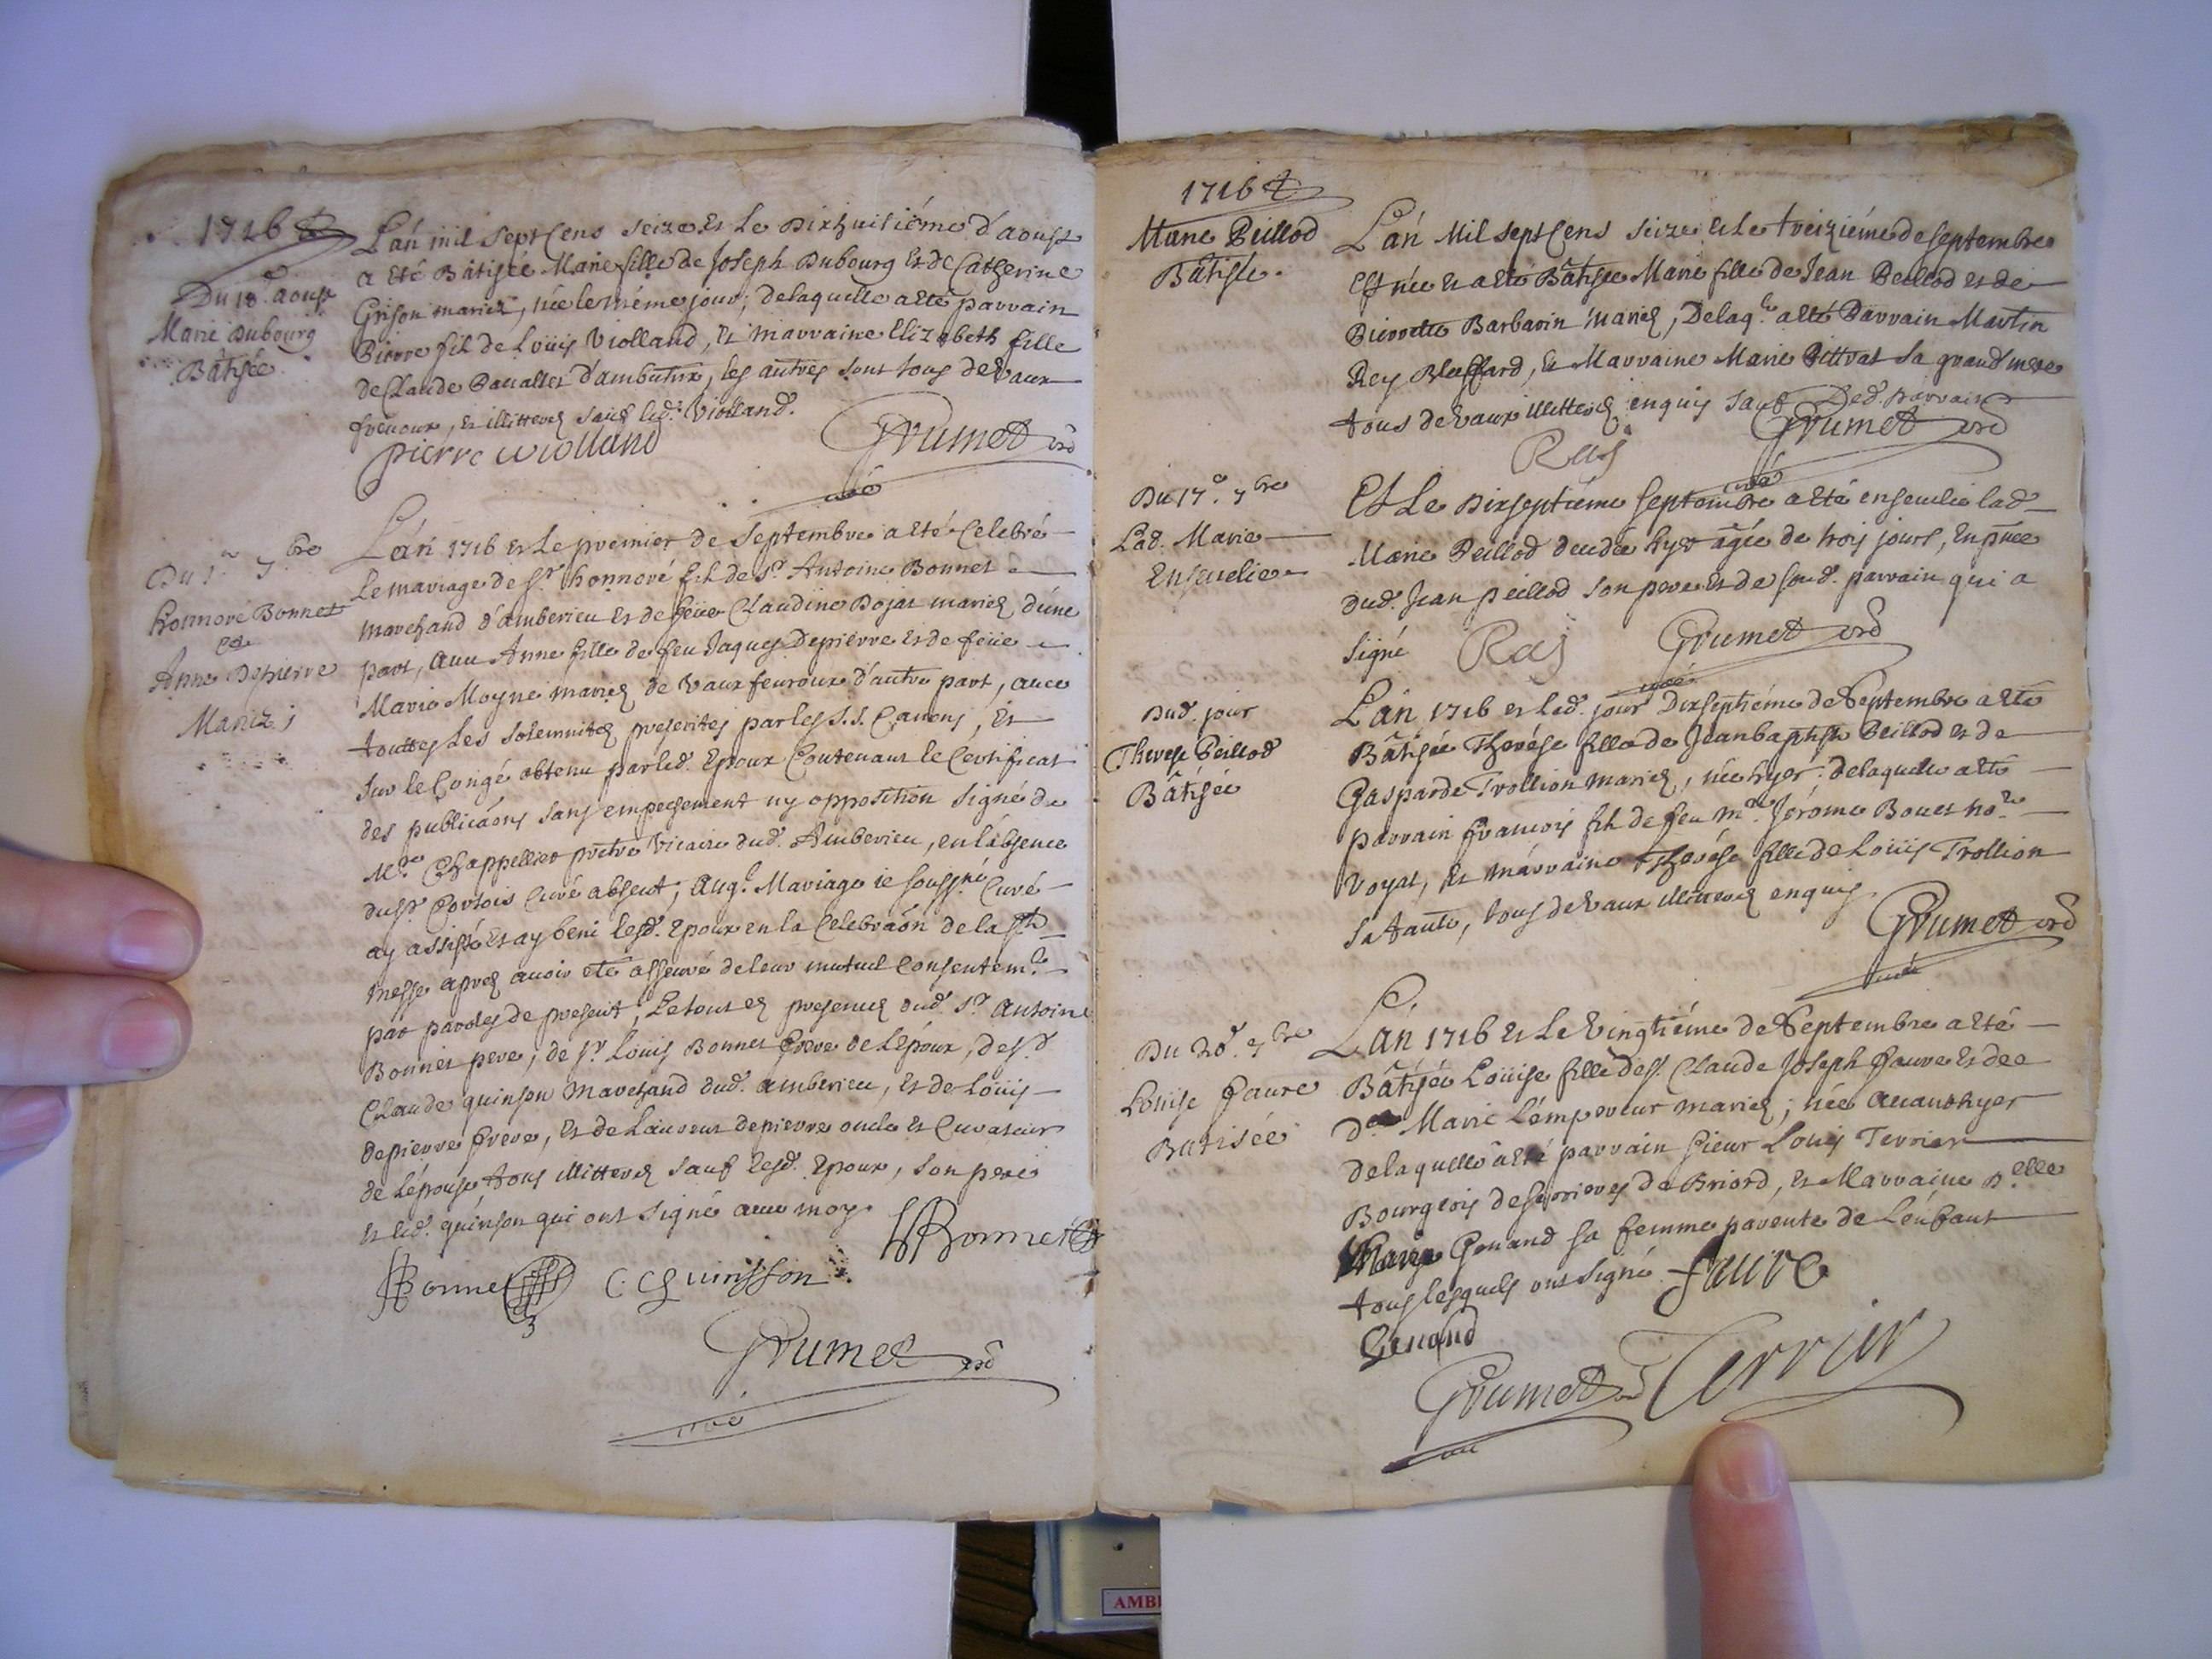 1716
Du 18e aoust
Marie Dubourg
Bâtisée
L'an mil sept Cens seize et Le Dixhuitiéme d'aoust
a eté Bâtisée Marie fille de Joseph Dubourg et de Catherine
Grison mariez, née le méme jour; de laquelle a eté parrain
Pierre fils de Loüis Violland, et marraine Elizabeth fille
de Claude Pauallet d'ambutrix, les autres sont tous de Vaux
feuroux, et illitterez sauf led. Violland.
pierre violland
Grumet
curé
Du 1er 7bre
honnoré Bonnet
et
Anne Depierre
Mariez
L'an 1716 et Le premier de Septembre a eté Celebré
Le mariage de Sr. honnoré fils de Sr. Antoine Bonnet
marchand d'amberieu et de feüe Claudine Dojat mariez d'une
part, auec Anne fille de feu Jaques Depierre et de feüe
Marie Moyne mariez de Vaux feuroux d'autre part, auec
touttes Les solemnitez prescrites par les S.S. Canons, et
sur le Congé obtenu par led. Epoux Contenant le Certificat
des publicaons sans empeschement ny opposition signé de
Mre. Chappellier prétre Vicaire dud. Amberieu, en l'absence
du Sr. Cortois Curé absent; Auql. Mariage ie soussné Curé
ay assisté et ay beni lesd. Epoux en la Celebraon de la ste
messe apres auoir eté asseuré de leur mutuel Consentemt.
par paroles de present, Le tout ez presences dud. Sr. Antoine
Bonnet pere; de Sr. Loüis Bonnet frere de L'époux, de Sr.
Claude quinson Marchand dud. amberieu, et de Loüis
depierre frere, et de Laurent depierre oncle et Curateur
de L'épouse tous illitterez sauf lesd. Epoux, son pere
et led. quinson qui ont signé auec moy.
Bonnet
Bonnet
C quinsson
Grumet
curé
1716
Marie Peillod
Bâtisée.
L'an Mil sept Cens seize et Le treiziéme de septembre
Est née et a eté Bâtisée Marie fille de Jean Peillod et de
Pierrette Barbarin mariez, De laqle. a eté Parrain Martin
Rey Bluffard, et Marraine Marie Pittrat sa grand mere
tous de Vaux illitterez enquis sauf Led. parrain
Rey
Grumet
curé
Du 17e. 7bre
Lad. Marie
Enseuelie
Et Le Dixseptiéme septembre a eté enseuelie lad.
Marie Peillod decedée hyer agée de trois jours, En pnce
dud. Jean peillod son pere et de sond. parrain qui a
signé
Rey
Grumet
curé
Dud. jour
Therese Peillod
Bâtisée
L'an 1716 et led. jour Dixseptiéme de Septembre a eté
Bâtisée Therése fille de Jean baptiste Peillod et de
Gasparde Trollion mariez, née hyer: de laquelle a eté
parrain francois fils de feu Mre. Jérome Bouet nore.
Royal, et marraine Therése fille de Loüis Trollion
sa tante, tous de Vaux illitterez enquis.
Grumet
curé
Du 20e. 7bre
Loüise faure
Batisée
L'an 1716 et Le Vingtiéme de Septembre a eté
Bâtisée Loüise fille de Sr. Claude Joseph faure et de
De. Marie L'émpereur mariez; née auanthyer
de laquelle a eté parrain sieur Louis Terrier
Bourgeois de serrieres de Briord, et Marraine Delle
Marie Genand sa femme parente de L'énfant
tous lesquels ont signé
faure
Genand
Grumet
curé
Terrier
AMB